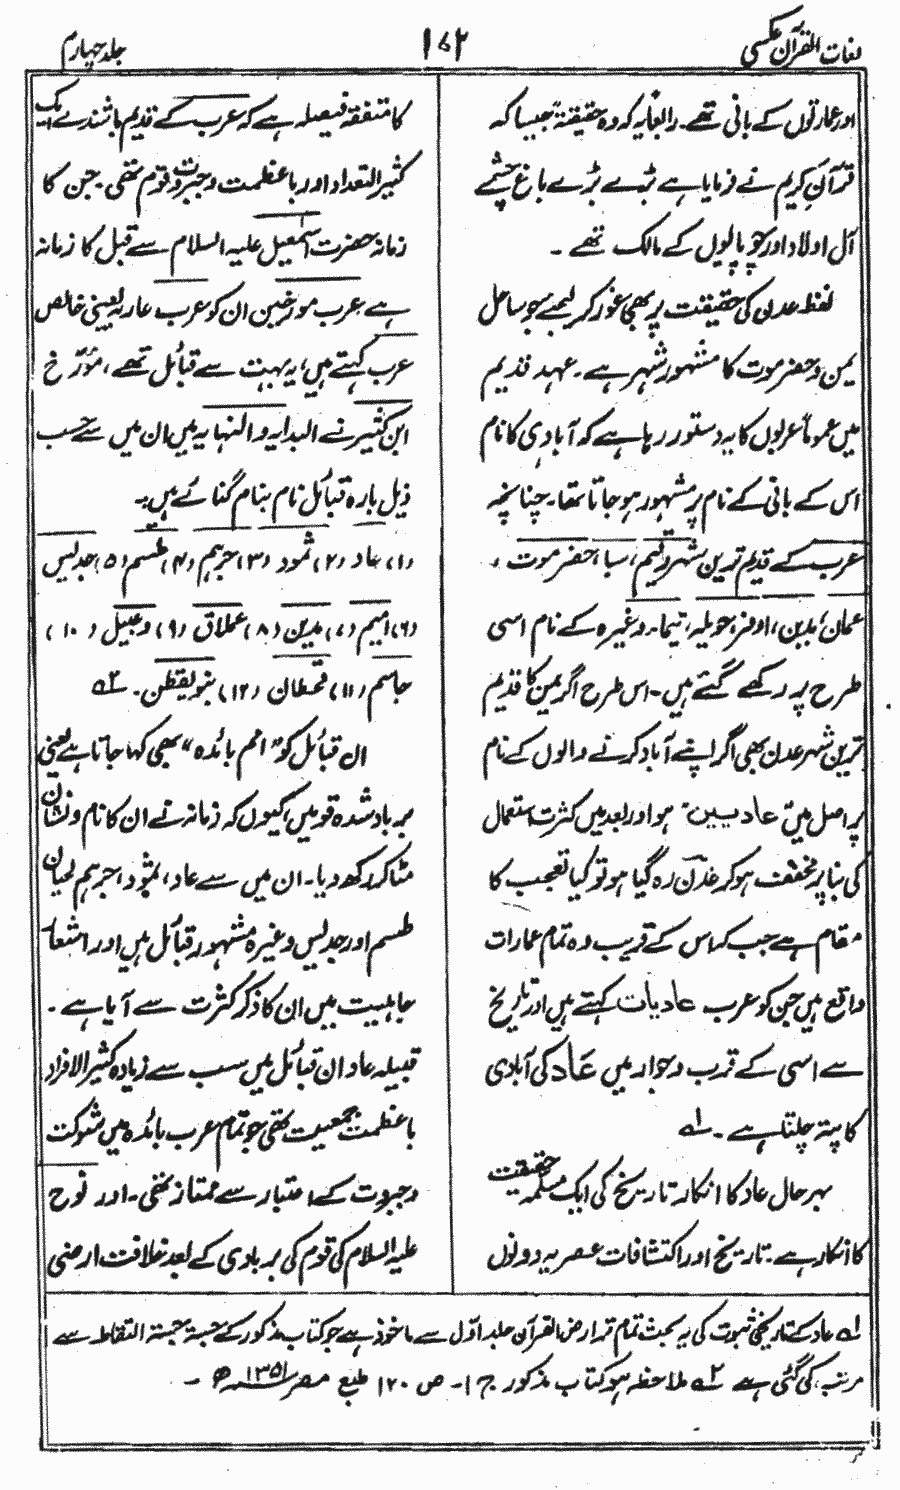 لغات القرآن عکسی
۱۷۲
جلد چہارم
اور عمارتوں کے بانی تھے۔ رابعاً یہ کہ وہ حقیقتہً جیسا کہ
قرآن کریم نے فرمایا ہے بڑے بڑے باغ چشمے
آل اولاد اور چوپایوں کے مالک تھے ۔
لفظ عدن کی حقیقت پر بھی غور کر لیجیے جو ساحل
یمن و حضرموت کا مشہور شہر ہے۔ عہد قدیم
میں عموماً عربوں کا یہ دستور رہا ہے کہ آبادی کا نام
اس کے بانی کے نام پر مشہور ہو جاتا تھا۔ چنانچہ
عرب کے قدیم ترین شہر دلہیم، سبا، حضرموت ،
عمان، مدین، اوفر، حویلہ، تیما۔ وغیرہ کے نام اسی
طرح پر رکھے گئے ہیں۔ اس طرح اگر یمن کا قدیم
ترین شہر عدن بھی اگر اپنے آباد کرنے والوں کے نام
پر اصل میں عاديين ہو اور بعد میں کثرت استعمال
کی بنا پر مخفف ہو کر عدن رہ گیا ہو تو کیا تعجب کا
مقام ہے جب کہ اس کے قریب وہ تمام عمارات
واقع ہیں جن کو عرب عادیات کہتے ہیں اور تاریخ
سے اسی کے قرب و جوار میں عاد کی آبادی
کا پتہ چلتا ہے ۔ ؎۱
بہر حال عاد کا انکار تاریخ کی ایک مسلمہ حقیقت
کا انکار ہے۔ تاریخ اور اکتشافات عصریہ دونوں
کا متفقہ فیصلہ ہے کہ عرب کے قدیم باشندے ایک
کثیر التعداد اور با عظمت و جبروت قوم تھی جن کا
زمانہ حضرت اسمٰعیل علیہ السلام سے قبل کا زمانہ
ہے عرب مورخین ان کو عرب عاربہ یعنی خالص
عرب کہتے ہیں، یہ بہت سے قبائل تھے، مؤرخ
ابن کثیر نے البدایہ والنہایہ میں ان میں سے حسب
ذیل بارہ قبائل نام بنام گنائے ہیں۔
(۱) عاد (۲) ثمود (۳) جرہم (۴) طسم (۵) جدیس
(۶) امیم (۷) مدین (۸) عملاق (۹) دعبیل (۱۰)
جاسم (۱۱) قحطان (۱۲) بنو یقطن۔ ؎۲
ان قبائل کو ”امم بائدہ“ بھی کہا جاتا ہے یعنی
برباد شدہ قومیں، کیوں کہ زمانہ نے ان کا نام و نشان
مٹا کر رکھ دیا۔ ان میں سے عاد، ثمود، جرہم لحیان
طسم اور جدیس وغیرہ مشہور قبائل ہیں اور اشعار
جاہلیت میں ان کا ذکر کثرت سے آیا ہے ۔
قبیلہ عاد ان قبائل میں سب سے زیادہ کثیر الافراد
با عظمت جمعیت تھی جو تمام عرب بائدہ میں شوکت
و جبروت کے اعتبار سے ممتاز تھی۔ اور نوح
علیہ السلام کی قوم کی بربادی کے بعد خلافت ارضی
؎۱ عاد کے تاریخی ثبوت کی یہ بحث تمام تر ارض القرآن جلد اوّل سے ماخوذ ہے جو کتاب مذکور کے جستہ جستہ التقاط سے
مرتب کی گئی ہے ؎۲ ملاحظہ ہو کتاب مذکور ج ۱۔ ص ۱۲۰ طبع مصر ۱۳۵۱ ھ ۔